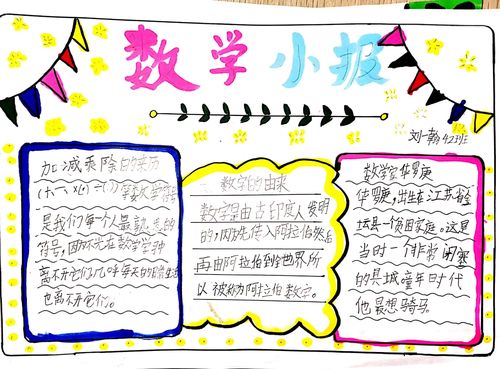 数学小报
刘一翰 423班
加减乘除的来历
等数学符号
是我们每个人最熟悉的
符号，因为不光在数学学种
离不开它们几乎每天的日常生活
也离不开它们。
数字的由来
数字是由古印度人发明
的，因为先传入阿拉伯然后
再由阿拉伯到全世界所
以被称为阿拉伯数字。
数学家华罗庚
华罗庚，出生在江苏省金
坛县一个贫困家庭。这是
当时一个非常闭塞
的县城童年时代
他最想骑马。